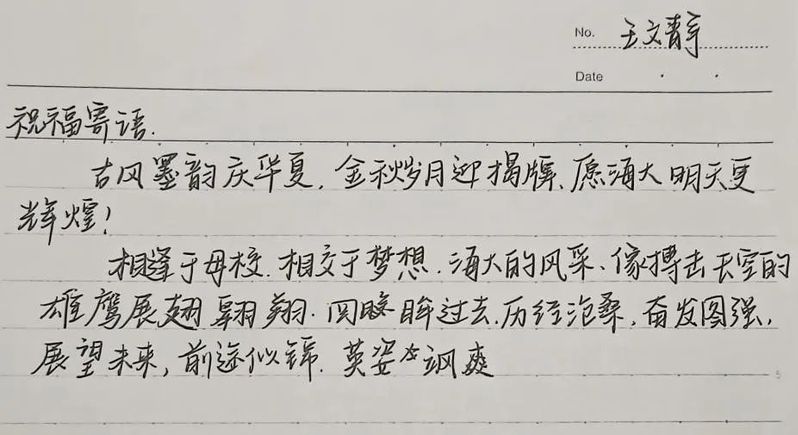 No. 王文静
Date
祝福寄语.
古风墨韵庆华夏,金秋岁月迎揭牌、愿海大明天更
辉煌!
相逢于母校.相交于梦想.海大的风采、像搏击天空的
雄鹰展翅翱翔.回眸过去.历经沧桑,奋发图强,
展望未来,前途似锦.英姿飒爽